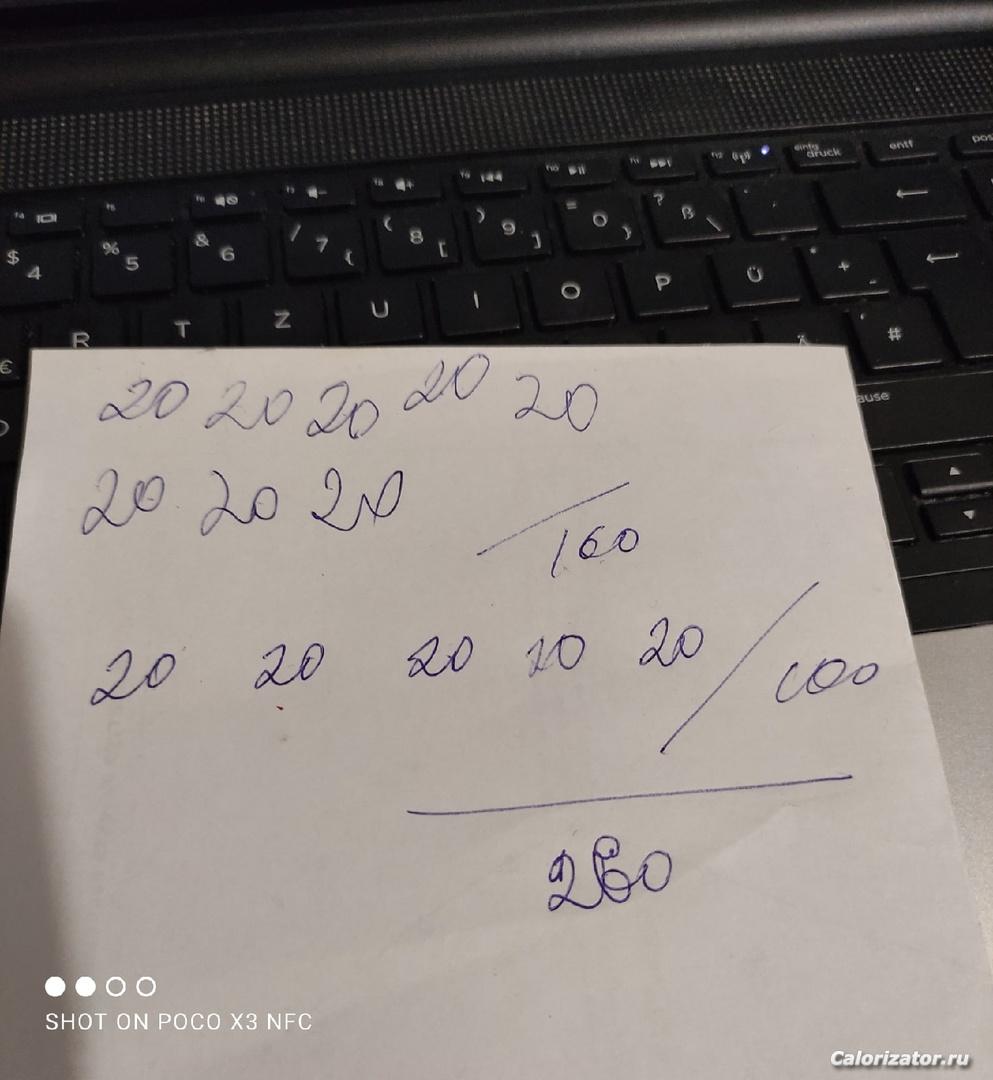 f4 f5 f6 f7 f8 f9 f10 f11 f12 einfg druck entf
$ 4 % 5 & 6 / 7 { ( 8 [ ) 9 ] = 0 } ? ß \
R T Z U I O P Ü * + ~
€ Ä ' #
20 20 20 20 20
20 20 20
160
20 20 20 20 20 / 100
260
SHOT ON POCO X3 NFC
Calorizator.ru